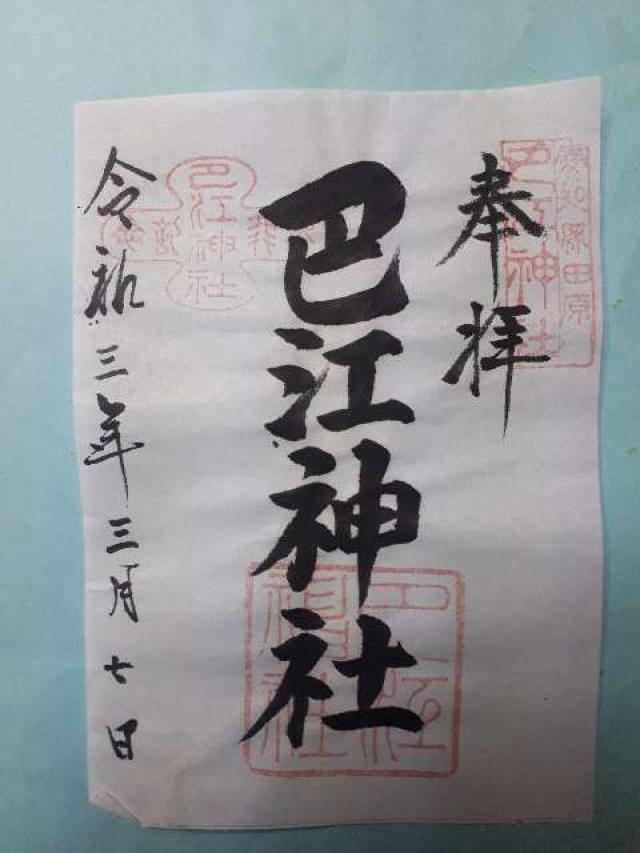 奉拝
巴江神社
令和三年三月七日
巴江神社
田原
巴江神社
巴江神社